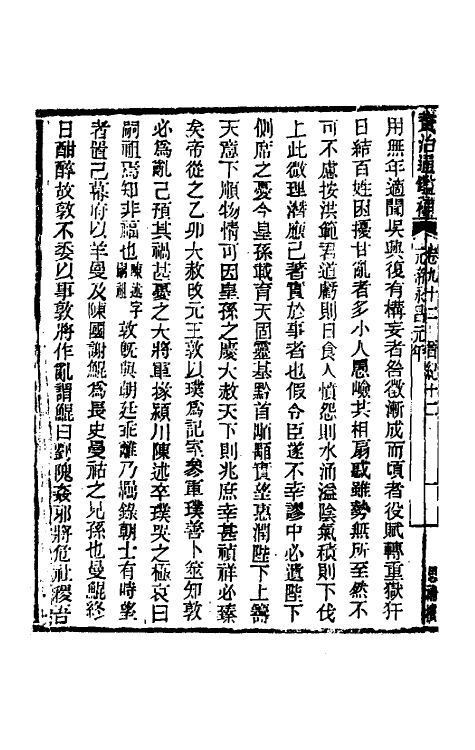 資治通鑑補 卷九十二 晉紀十四 元帝永昌元年
用無年適聞吳興復有構妄者咎徵漸成而頃者役賦轉重獄犴
日結百姓困擾甘亂者多小人愚嶮共相扇惑雖勢無所至然不
可不慮按洪範君道虧則日食人憤怨則水涌溢陰氣積則下伐
上此微理潛應已著實於事者也假令臣遂不幸謬中必遺陛下
側席之憂今皇孫載育天固靈基黔首顒顒實望惠潤陛下上答
天意下順物情可因皇孫之慶大赦天下則兆庶幸甚禎祥必臻
矣帝從之乙卯大赦改元王敦以璞為記室參軍璞善卜筮知敦
必為亂己預其禍甚憂之大將軍掾潁川陳述卒璞哭之極哀曰
嗣祖焉知非福也陳述字嗣祖敦旣與朝廷乖離乃羈錄朝士有時望
者置己幕府以羊曼及陳國謝鯤為長史曼祜之兄孫也曼鯤終
日酣醉故敦不委以事敦將作亂謂鯤曰劉隗姦邪將危社稷吾
思補樓